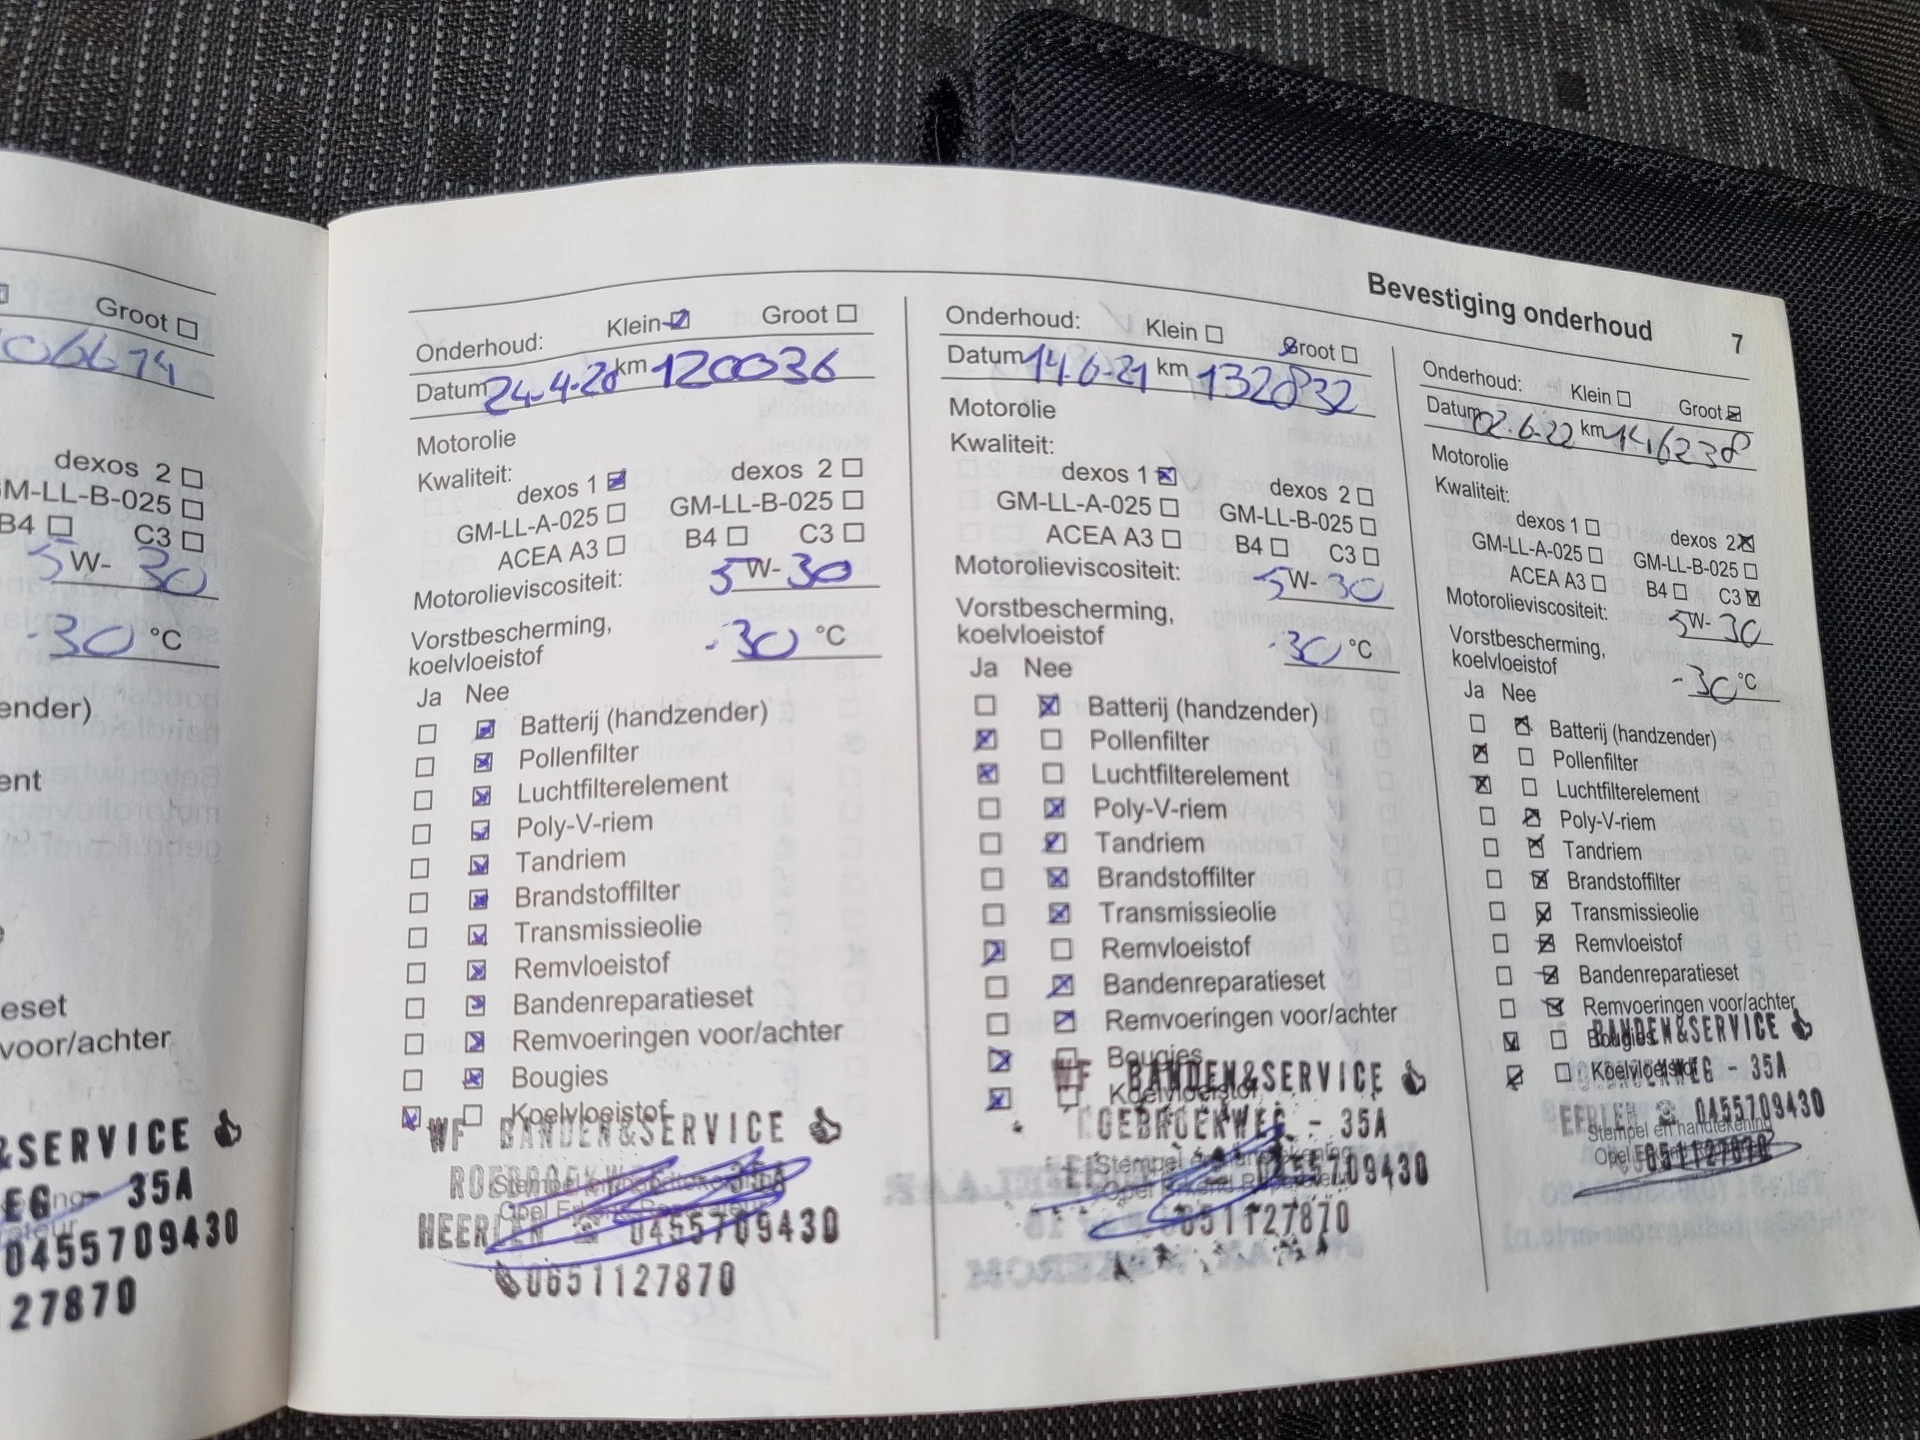 Groot
06614
dexos 2
GM-LL-B-025
B4 C3
5W-30
-30 °C
ender)
ent
eset
voor/achter
&SERVICE
EG - 35A
0455709430
27870
Bevestiging onderhoud 7
Onderhoud: Klein Groot
Datum 24-4-20 km 120036
Motorolie
Kwaliteit:
dexos 1 dexos 2
GM-LL-A-025 GM-LL-B-025
ACEA A3 B4 C3
Motorolieviscositeit: 5W-30
Vorstbescherming,
koelvloeistof -30 °C
Ja Nee
Batterij (handzender)
Pollenfilter
Luchtfilterelement
Poly-V-riem
Tandriem
Brandstoffilter
Transmissieolie
Remvloeistof
Bandenreparatieset
Remvoeringen voor/achter
Bougies
Koelvloeistof
WF BANDEN&SERVICE
35A
HEERLEN 0455709430
0651127870
Onderhoud: Klein Groot
Datum 14-6-21 km 132832
Motorolie
Kwaliteit:
dexos 1 dexos 2
GM-LL-A-025 GM-LL-B-025
ACEA A3 B4 C3
Motorolieviscositeit: 5W-30
Vorstbescherming,
koelvloeistof -30 °C
Ja Nee
Batterij (handzender)
Pollenfilter
Luchtfilterelement
Poly-V-riem
Tandriem
Brandstoffilter
Transmissieolie
Remvloeistof
Bandenreparatieset
Remvoeringen voor/achter
Bougies
Koelvloeistof
WF BANDEN&SERVICE
- 35A
Stempel
0455709430
0651127870
Onderhoud: Klein Groot
Datum 02-6-22 km 146238
Motorolie
Kwaliteit:
dexos 1 dexos 2
GM-LL-A-025 GM-LL-B-025
ACEA A3 B4 C3
Motorolieviscositeit: 5W-30
Vorstbescherming,
koelvloeistof -30 °C
Ja Nee
Batterij (handzender)
Pollenfilter
Luchtfilterelement
Poly-V-riem
Tandriem
Brandstoffilter
Transmissieolie
Remvloeistof
Bandenreparatieset
Remvoeringen voor/achter
Bougies
BANDEN&SERVICE
Koelvloeistof
- 35A
0455709430
Stempel en handtekening
Opel
0651127870